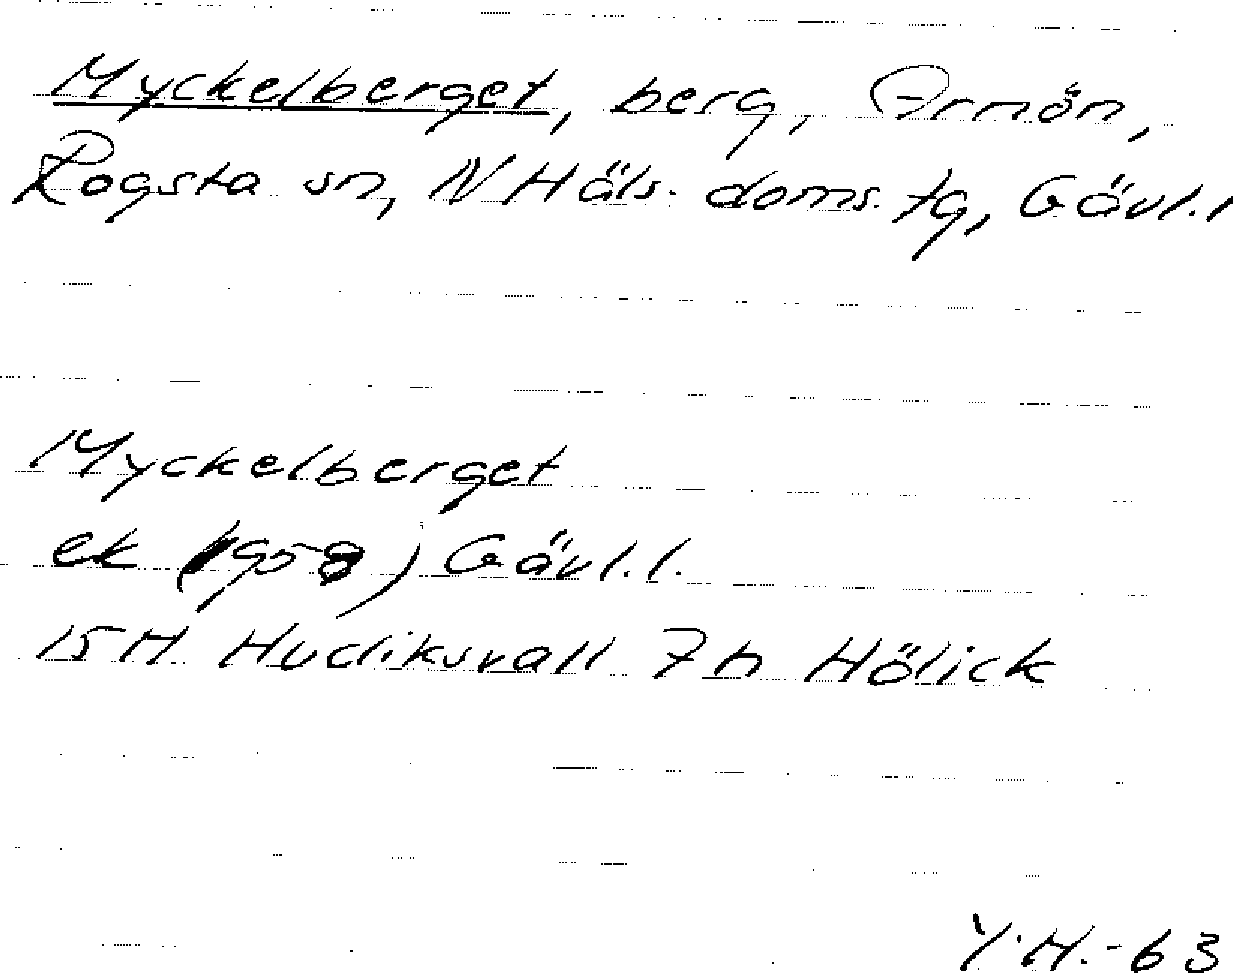 Myckelberget, berg, Ornön,
Rogsta sn, N Häls. doms. tg, Gävl. l
Myckelberget
ek (1958) Gävl. l.
15H Hudiksvall 7h Hölick
Y.H.-63